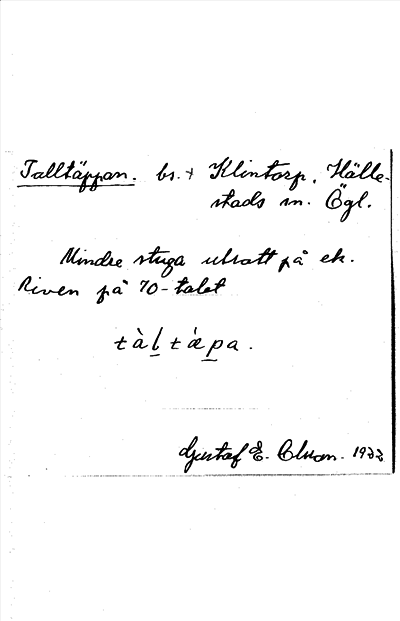 Talltäppan. bs. † Klintorp, Hälle-
stads sn. Ögl.
Mindre stuga utsatt på ek.
Riven på 70-talet
tàltǽpa.
Gustaf E. Olsson. 1933